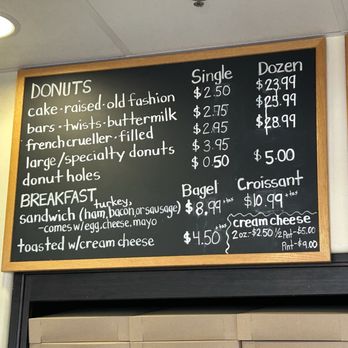 DONUTS Single Dozen
cake · raised · old fashion $2.50 $23.99
bars · twists · buttermilk $2.75 $25.99
french crueller · filled $2.95 $28.99
large/specialty donuts $3.95
donut holes $0.50 $5.00
BREAKFAST Bagel Croissant
turkey,
sandwich (ham, bacon, or sausage) $8.99 +tax $10.99 +tax
-comes w/egg, cheese, mayo
toasted w/cream cheese $4.50 +tax
cream cheese
2 oz-$2.50 1/2 Pint-$5.00
Pint-$9.00